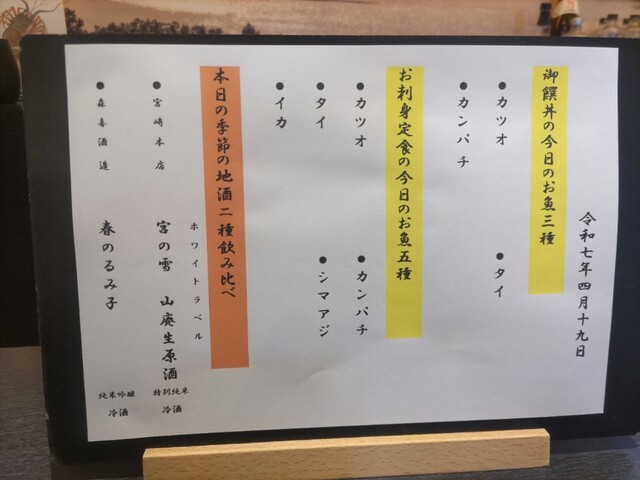 令和七年四月十九日
御饌丼の今日のお魚三種
●カツオ ●タイ
●カンパチ
お刺身定食の今日のお魚五種
●カツオ ●カンパチ
●タイ ●シマアジ
●イカ
本日の季節の地酒二種飲み比べ
ホワイトラベル
●宮崎本店 宮の雪 山廃生原酒 特別純米 冷酒
●森喜酒造 春のるみ子 純米吟醸 冷酒